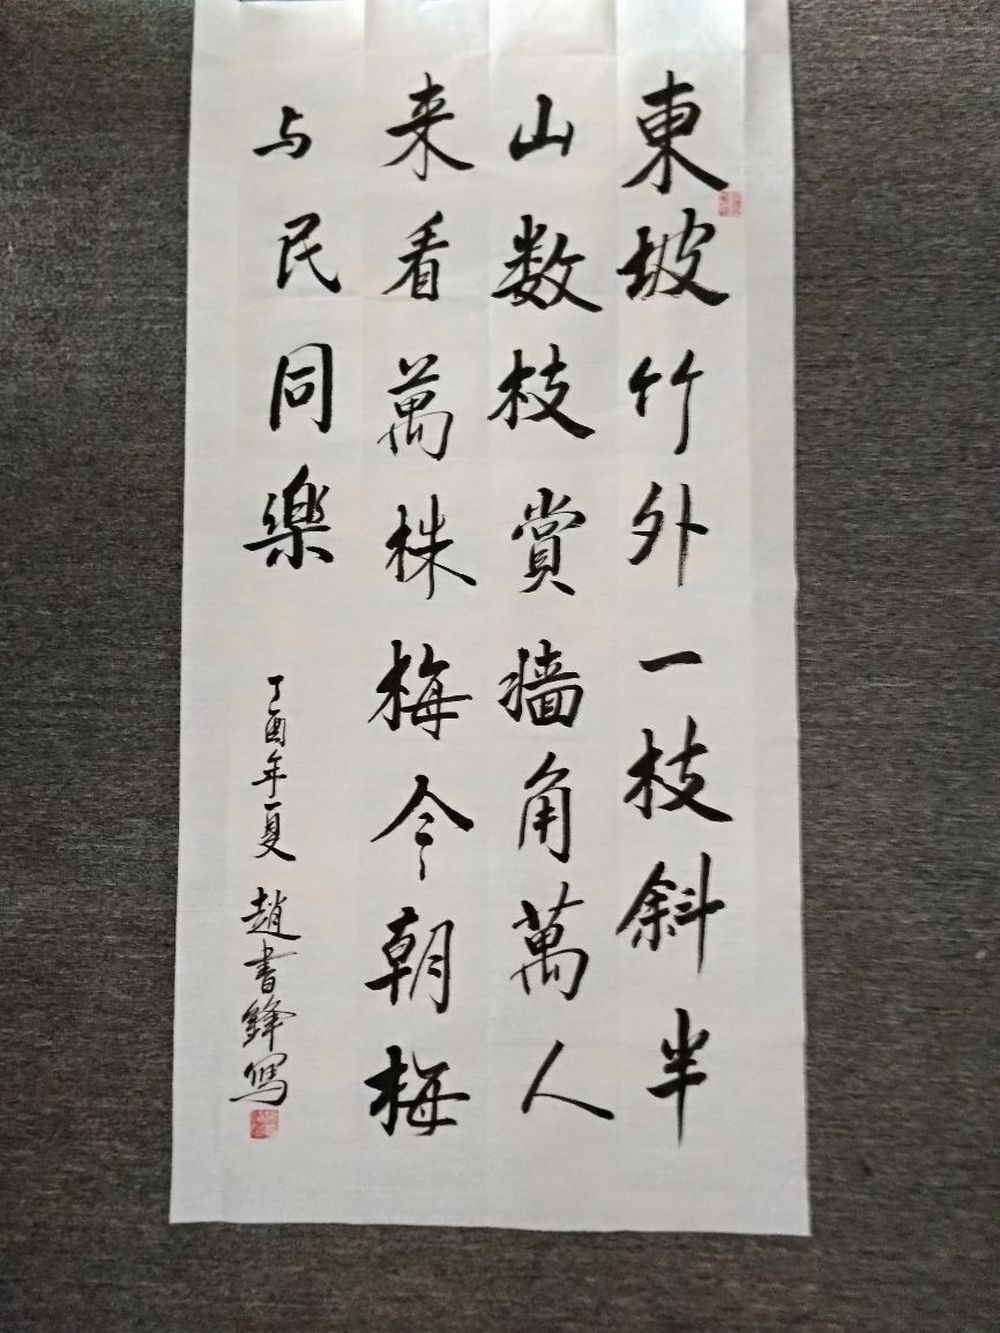 東坡竹外一枝斜半
山数枝赏墙角萬人
来看萬株梅今朝梅
与民同樂
丁酉年夏 趙書鋒寫